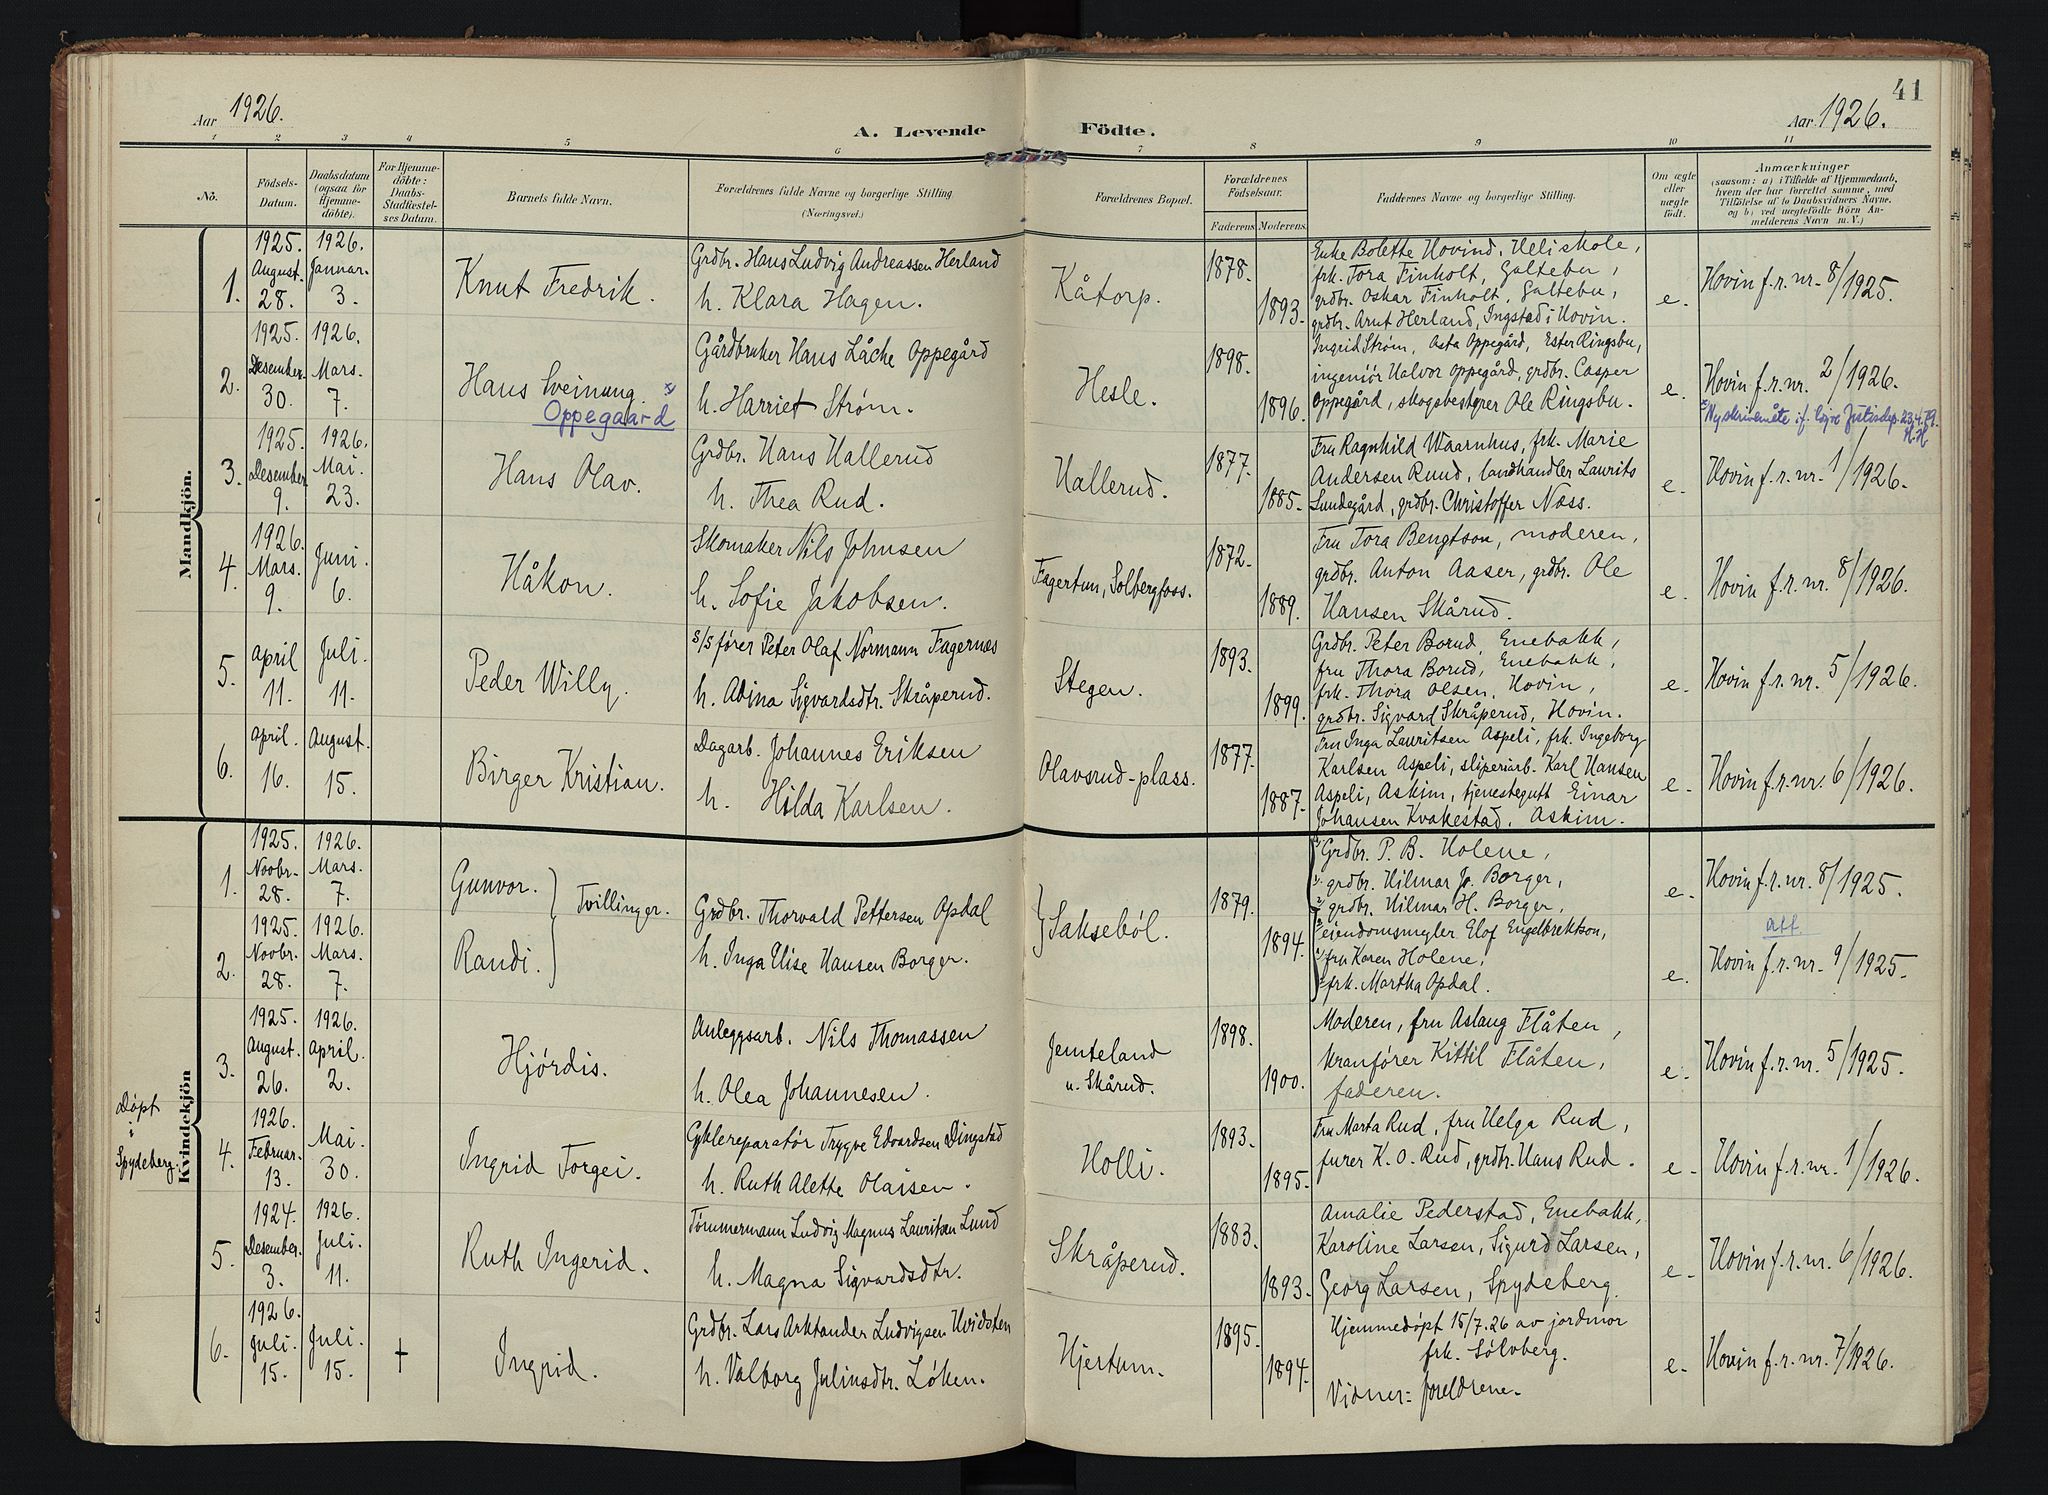 41
Aar 1926.
A. Levende Födte.
Aar 1926.
1 2 3 4 5 6 7 8 9 10 11
No.
Födsels-Datum.
Daabsdatum (ogsaa for Hjemme-döbte).
For Hjemme-döbte: Daabs-Stadfæstel-ses Datum.
Barnets fulde Navn.
Forældrenes fulde Navne og borgerlige Stilling. (Næringsvei.)
Forældrenes Bopæl.
Forældrenes Födselsaar.
Faderens. Moderens.
Faddernes Navne og borgerlige Stilling.
Om ægte eller uægte født.
Anmærkninger
(saasom: a) i Tilfælde af Hjemmedaab,
hvem der har forrettet samme, med
Tilföielse af to Daabsvidners Navne,
og b) ved uægtefödte Börn An-
melderens Navn m. V.)
Mandkjön.
1.
1925. August. 28.
1926. Januar. 3.
Knut Fredrik.
Grdbr. Hans Ludvig Andreassen Herland
h. Klara Hagen.
Kåtorp.
1878.
1893.
Enke Bolette Hovind, Heliskole,
frk. Tora Finholt, Galtebu,
grdbr. Oskar Finholt, Galtebu,
grdbr. Arnt Herland, Ingstad i Hovin.
e.
Hovin f.r.nr. 8/1925.
2.
1925. Desember. 30.
1926. Mars. 7.
Hans Sveinung. x)
Oppegaard
Gårdbruker Hans Låche Oppegård
h. Harriet Strøm.
Hesle.
1898.
1896.
Ingrid Strøm, Asta Oppegård, Ester Ringsbu,
ingeniør Halvor Oppegård, grdbr. Casper
Oppegård, skogsbestyrer Ole Ringsbu.
e.
Hovin f.r.nr. 2/1926.
x) Ny skrivemåte if. Justisdep. 23.4.79.
H.H.
3.
1925. Desember 9.
1926. Mai. 23.
Hans Olav.
Grdbr. Hans Hallerud
h. Thea Rud.
Hallerud.
1877.
1885.
Fru Ragnhild Waarnhus, frk. Marie
Andersen Ruud, landhandler Laurits
Lundegård, grdbr. Christoffer Næss.
e.
Hovin f.r.nr. 1/1926.
4.
1926. Mars. 9.
Juni. 6.
Håkon.
Skomaker Nils Johnsen
h. Sofie Jakobsen.
Fagertun, Solbergfoss.
1872.
1889.
Fru Tora Bengtson, moderen,
grdbr. Anton Aaser, grdbr. Ole
Hansen Skårud.
e.
Hovin f.r.nr. 8/1926.
5.
April 11.
Juli. 11.
Peder Willy.
s/s fører Peter Olaf Normann Fagernæs
h. Adina Sigvardsdtr. Skråperud.
Stegen.
1893.
1899.
Grdbr. Peter Borud, Enebakk,
fru Thora Borud, Enebakk,
frk. Thora Olsen, Hovin,
grdbr. Sigvard Skråperud, Hovin.
e.
Hovin f.r.nr. 5/1926.
6.
April. 16.
August. 15.
Birger Kristian.
Dagarb. Johannes Eriksen
h. Hilda Karlsen.
Olavsrud-plass.
1877.
1887.
Fru Inga Lauritsen Aspeli, frk. Ingeborg
Karlsen Aspeli, sliperiarb. Karl Hansen
Aspeli, Askim, tjenestegutt Einar
Johansen Kvakestad, Askim.
e.
Hovin f.r.nr. 6/1926.
Kvindekjön
1.
1925. Novbr. 28.
1926. Mars. 7.
Gunvor.
Tvillinger.
2.
1925. Novbr. 28.
1926. Mars. 7.
Randi.
Grdbr. Thorvald Pettersen Opdal
h. Inga Elise Hansen Borger.
Saksebøl.
1879.
1894.
Grdbr. P. B. Holene,
grdbr. Hilmar Jo. Borger,
grdbr. Hilmar H. Borger,
eiendomsmegler Elof Engelbrektson,
fru Karen Holene,
frk. Martha Opdal.
e.
Hovin f.r.nr. 8/1925.
att.
e.
Hovin f.r.nr. 9/1925.
3.
1925. August. 26.
1926. April. 2.
Hjørdis.
Anleggsarb. Nils Thomassen
h. Olea Johannesen.
Jemteland
u. Skårud.
1898.
1900.
Moderen, fru Aslaug Flåten,
kranfører Kittil Flåten,
faderen.
e.
Hovin f.r.nr. 5/1925.
Døpt
i
Spydeberg.
4.
1926. Februar. 13.
Mai. 30.
Ingrid Torgei.
Cyklereparatør Trygve Edvardsen Dingstad
h. Ruth Alette Olaisen.
Holli.
1893.
1895.
Fru Marta Rud, fru Helga Rud,
furer K. O. Rud, grdbr. Hans Rud.
e.
Hovin f.r.nr. 1/1926.
5.
1924. Desember. 3.
1926. Juli. 11.
Ruth Ingerid.
Tømmermann Ludvig Magnus Lauritsen Lund
h. Magna Sigvardsdtr.
Skråperud.
1883.
1893.
Amalie Pederstad, Enebakk,
Karoline Larsen, Sigurd Larsen,
Georg Larsen, Spydeberg.
e.
Hovin f.r.nr. 6/1926.
6.
1926. Juli. 15.
Juli. 15.
+
Ingrid.
Grdbr. Lars Arktander Ludvigsen Hvidsten
h. Valborg Juliusdtr. Løken.
Hjertum.
1895.
1894.
Hjemmedøpt 15/7.26 av jordmor
frk. Sølvberg.
Vidner: foreldrene.
e.
Hovin f.r.nr. 7/1926.